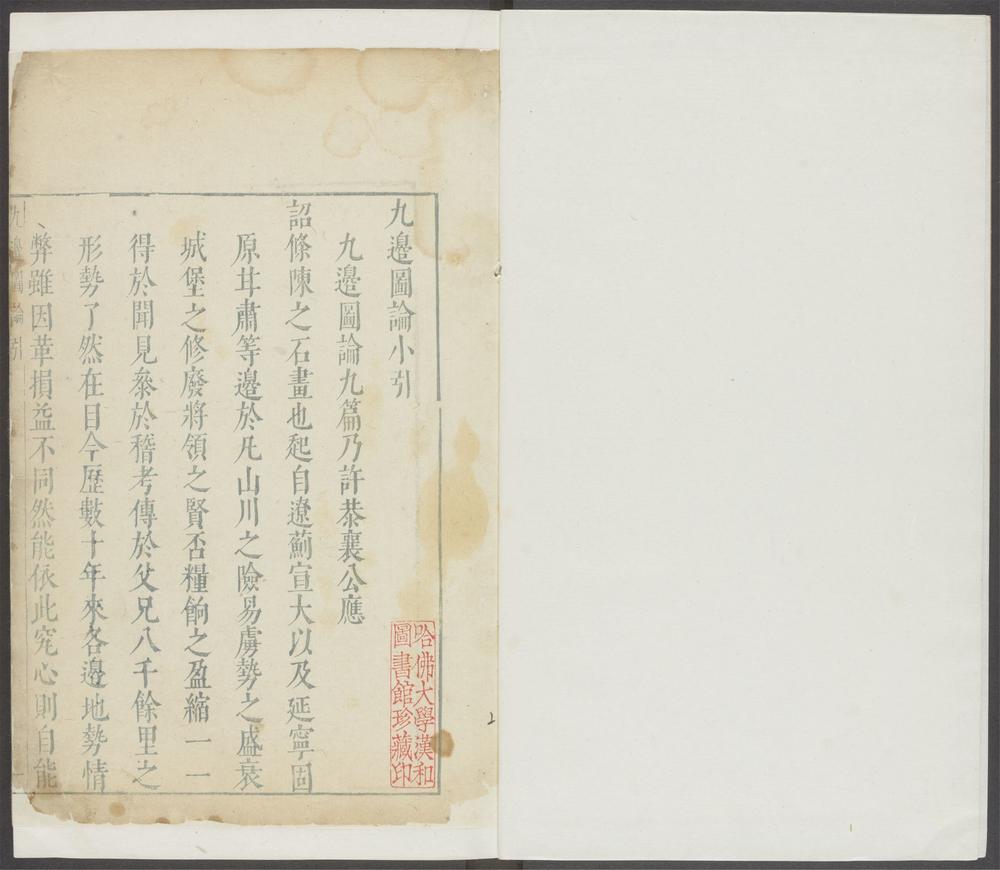 九邊圖論小引
九邊圖論九篇乃許恭襄公應
詔條陳之石畫也起自遼薊宣大以及延寧固
原甘肅等邊於凡山川之險易虜勢之盛衰
城堡之修廢將領之賢否糧餉之盈縮一一
得於聞見叅於稽考傳於父兄八千餘里之
形勢了然在目今歷數十年來各邊地勢情
弊雖因革損益不同然能依此究心則自能
九邊圖論 引
哈佛大學漢和
圖書館珍藏印